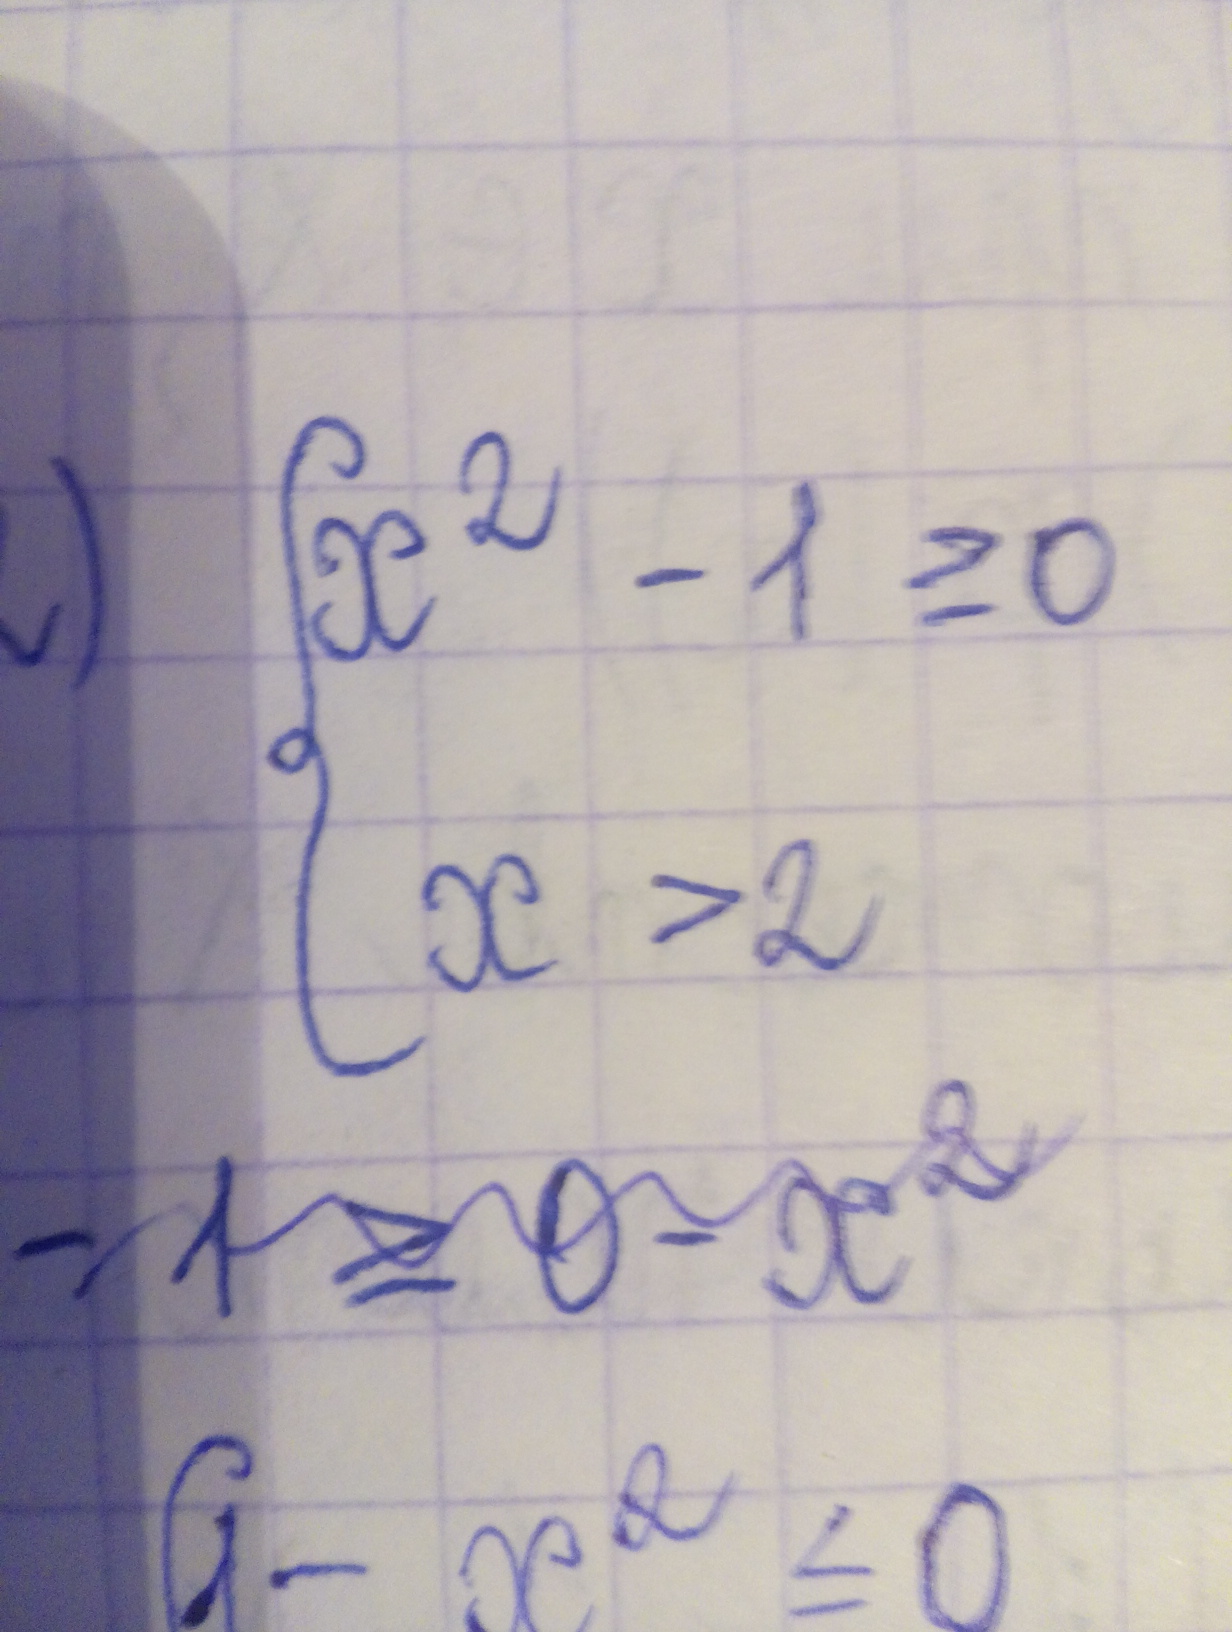 ) { x² - 1 ≥ 0
x > 2
- 1 ≥ 0 - x²
{ 1 - x² ≤ 0